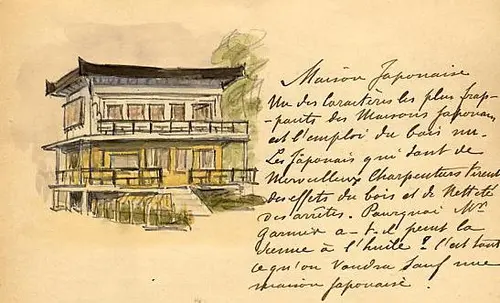 Maison Japonaise
Un des Caractères les plus frap-
-pants des Maisons Japonaises
est l'emploi du bois nu.
Les Japonais qui sont de
Merveilleux Charpentiers tirent
des effets du bois et de Netteté
des arrêtes. Pourquoi Mr
Garnier a-t-il peint la
sienne à l'huile ? C'est tout
ce qu'on voudra sauf une
maison Japonaise.